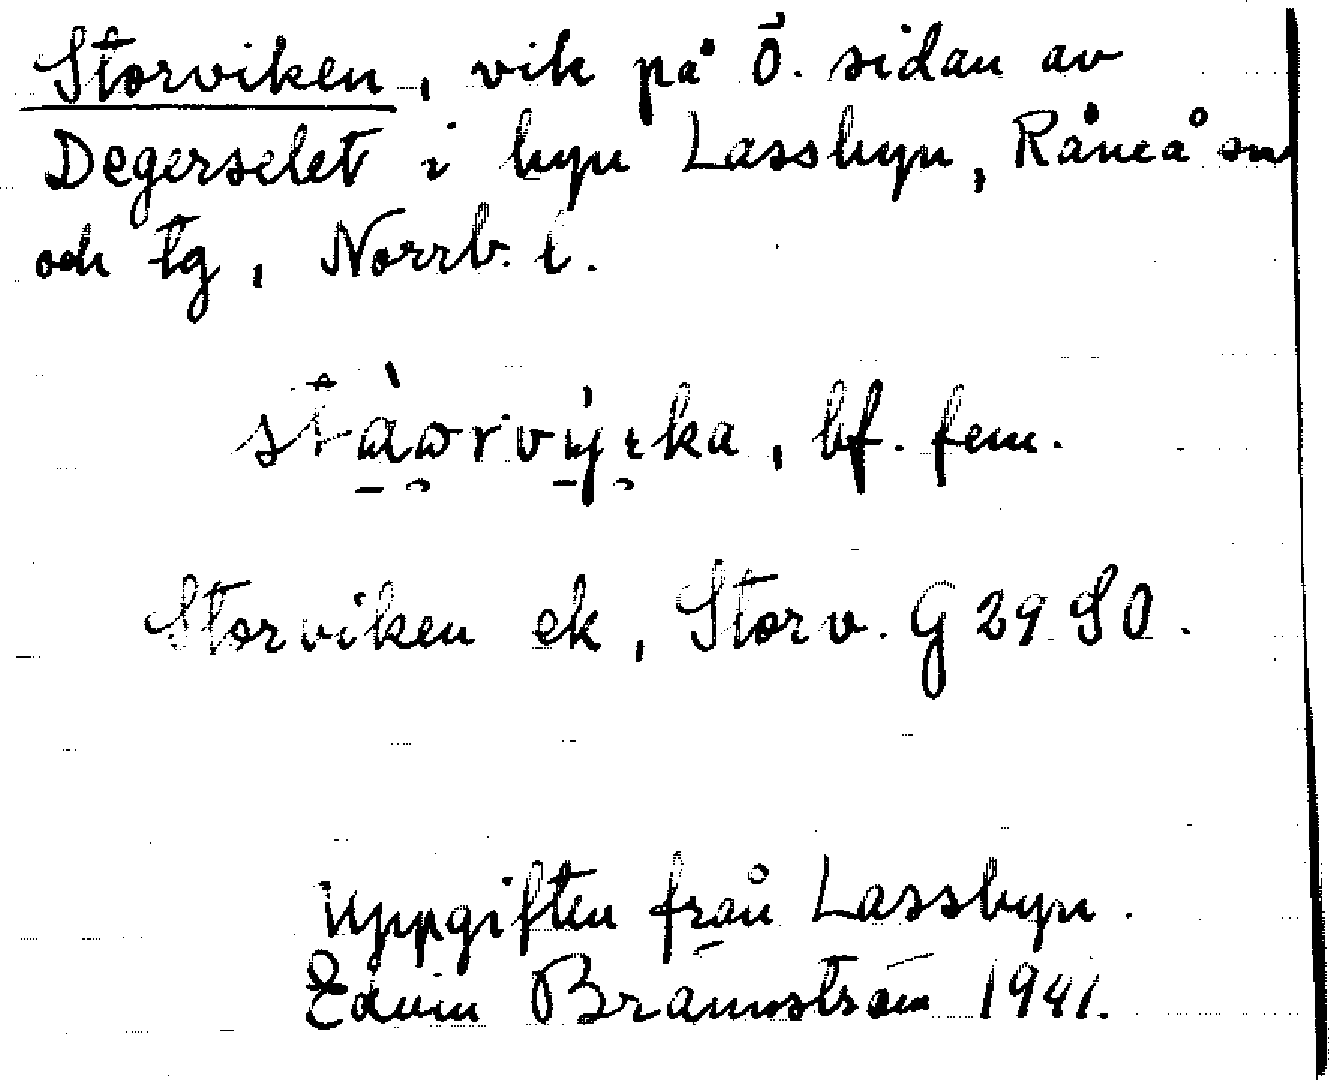 Storviken, vik på Ö. sidan av
Degerselet i byn Lassbyn, Råneå sn
och tg, Norrb. l.
bf. fem.
Storviken ek, Storv. G 29 SO.
Uppgiften från Lassbyn.
Edvin Brännström 1941.